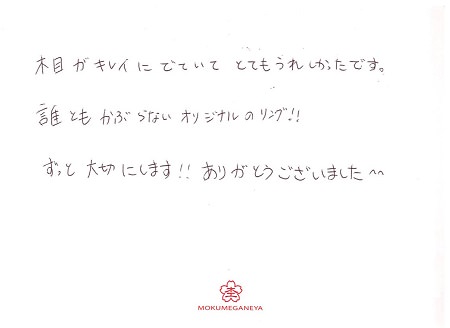 木目がキレイにでていてとてもうれしかったです。
誰ともかぶらないオリジナルのリング!!
ずっと大切にします!! ありがとうございました^^
杢
MOKUMEGANEYA